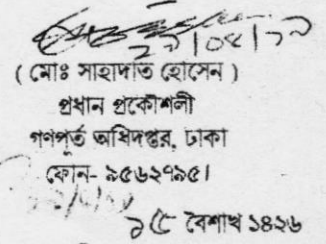 ২৯/০৪/১৯
( মোঃ সাহাদাত হোসেন )
প্রধান প্রকৌশলী
গণপূর্ত অধিদপ্তর, ঢাকা
ফোন- ৯৫৬২৭৯৫।
১৫ বৈশাখ ১৪২৬